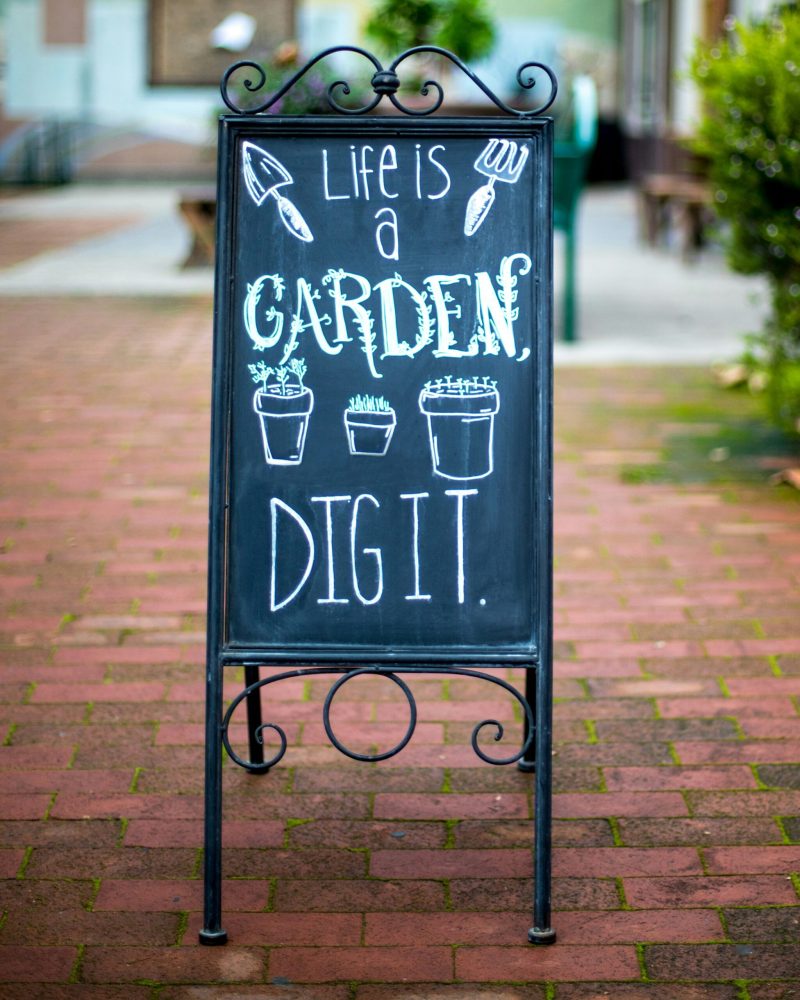 Life is
a
GARDEN,
DIG IT.